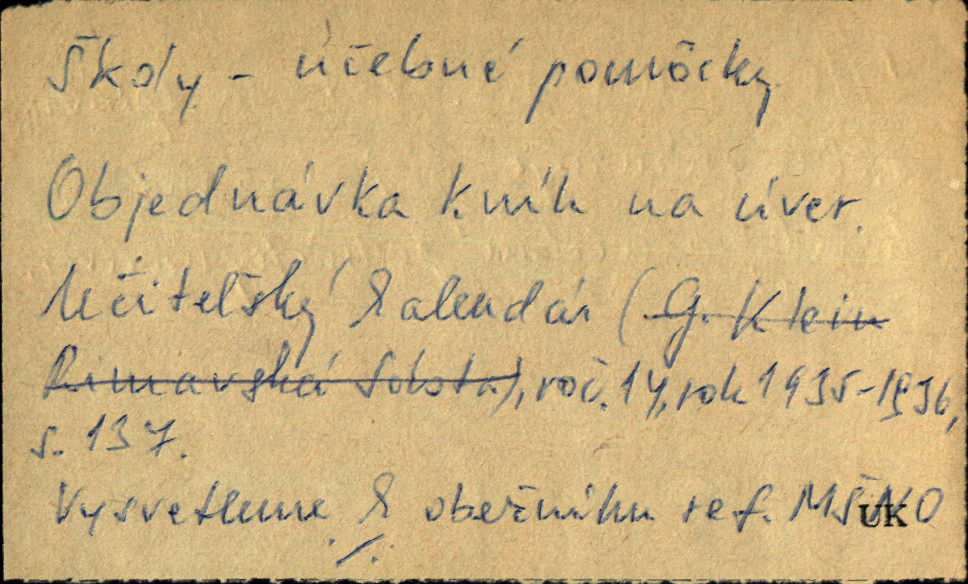 Školy - učebné pomôcky
Objednávka kníh na úver.
Učiteľský kalendár (G. Klein
Rimavská Sobota), roč. 14, rok 1935-1936,
s. 137.
Vysvetlenie k obežníku ref. MŠANO
UK
./.